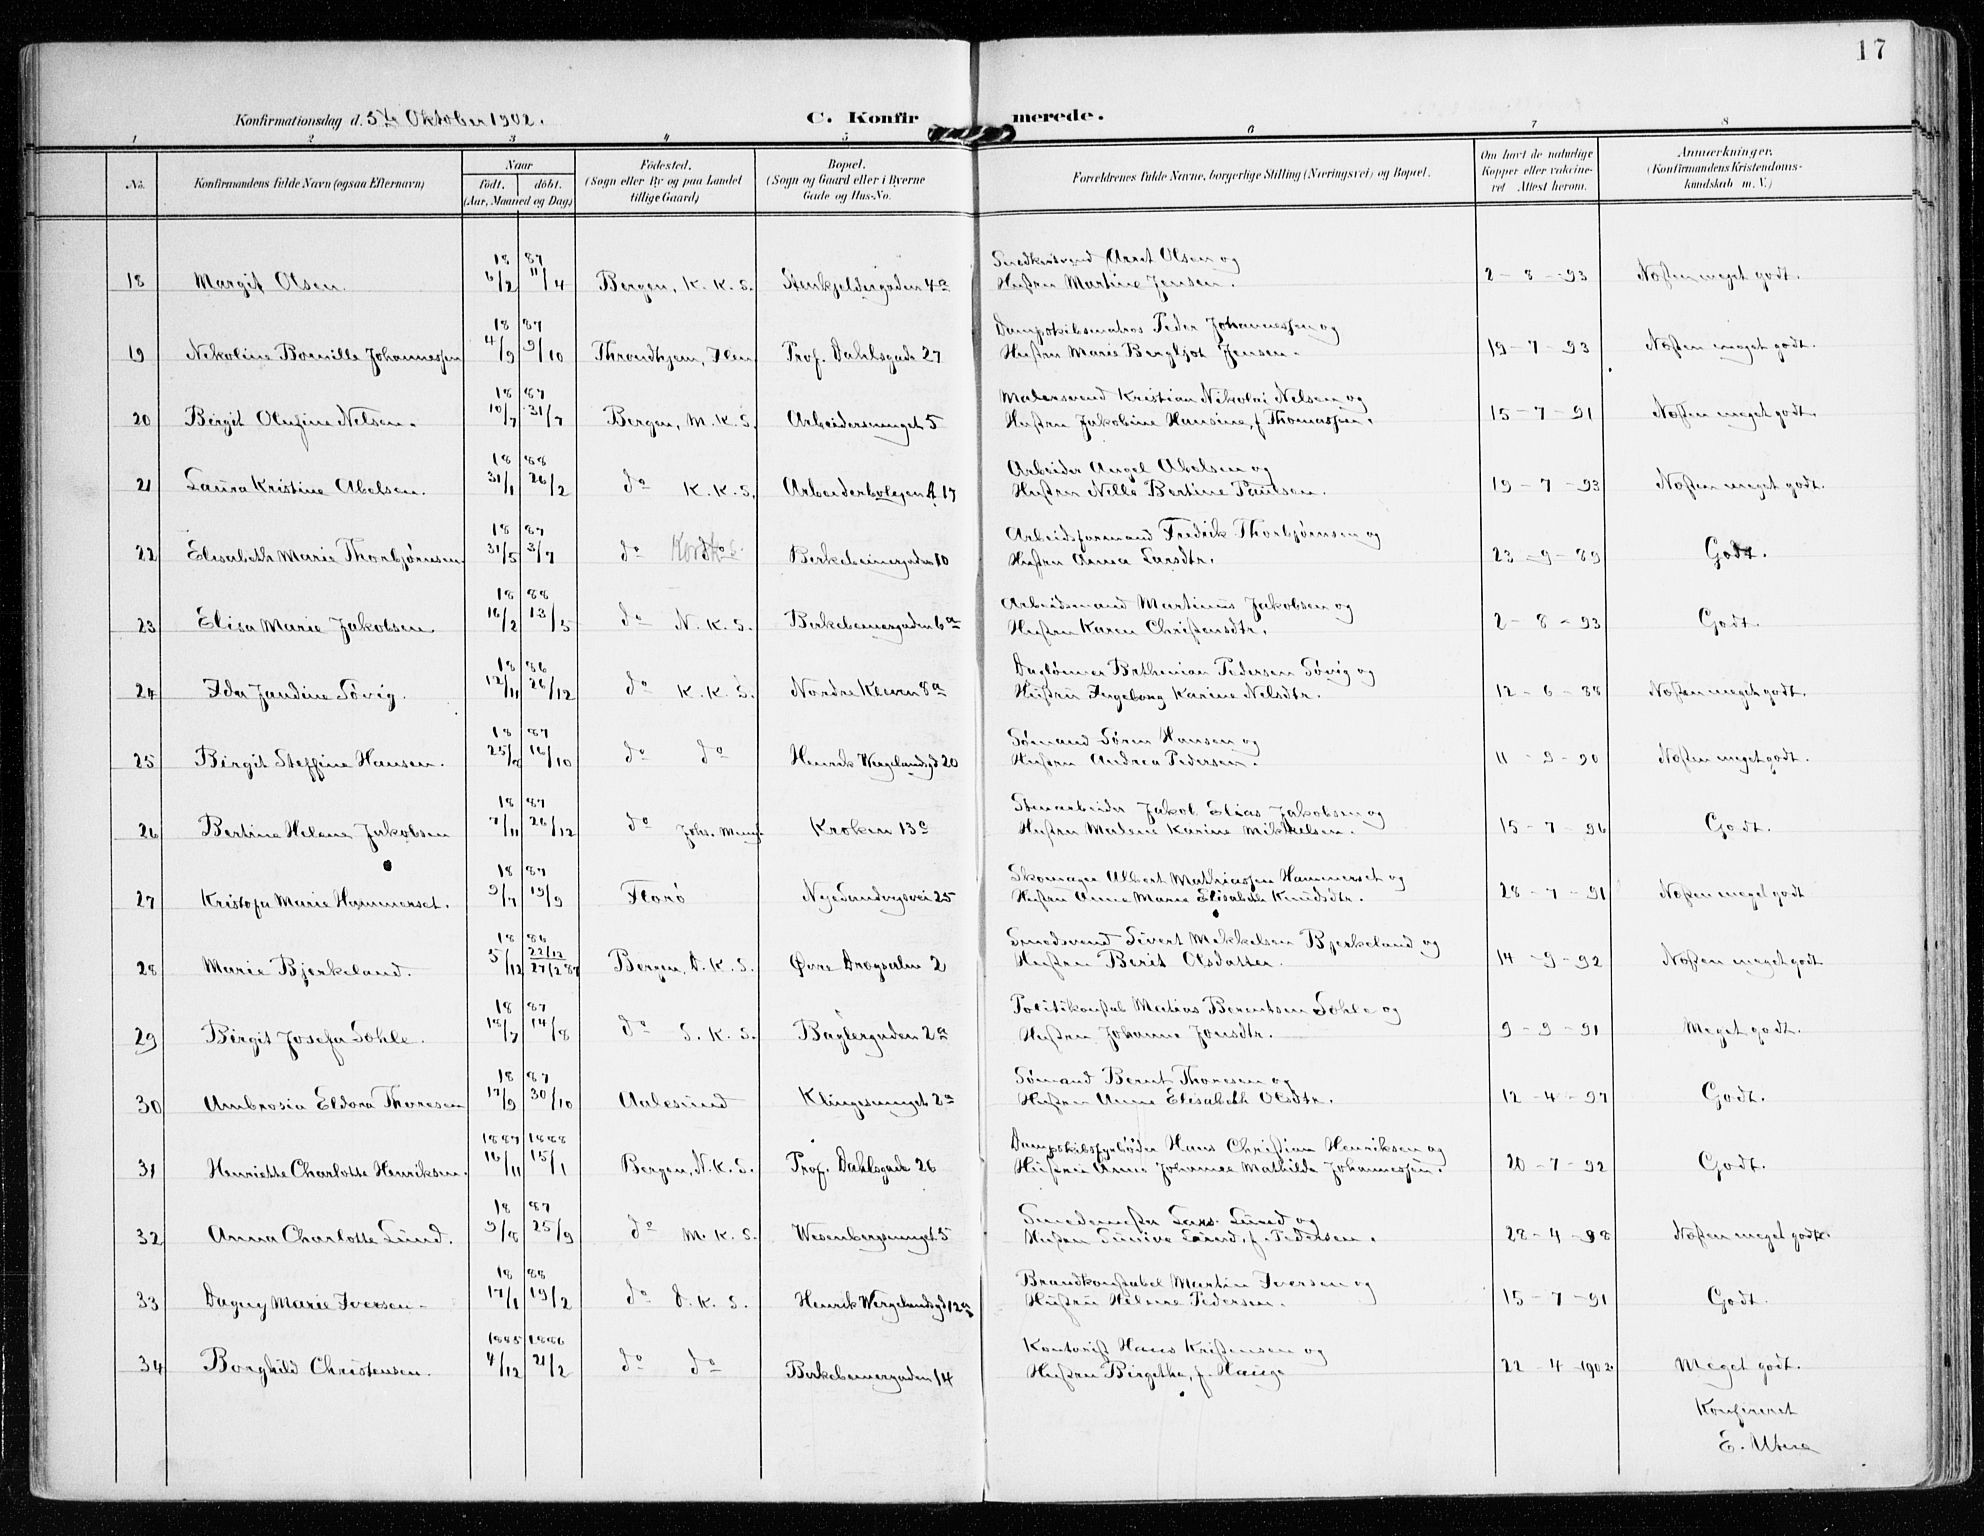 17
Konfirmationsdag d. 5te Oktober 1902.
C. Konfirmerede.
1 2 3 4 5 6 7 8
No. Konfirmandens fulde Navn (ogsaa Efternavn) Naar født. døbt. (Aar, Maaned og Dag) Fødested. (Sogn eller By og paa Landet tillige Gaard) Bopæl. (Sogn og Gaard eller i Byerne Gade og Hus-No. Forældrenes fulde Navne, borgerlige Stilling (Næringsvei) og Bopæl. Om havt de naturlige Kopper eller vakcineret. Attest herom. Anmærkninger. (Konfirmandens Kristendomskundskab m. V.)
18 87 Snedkersvend Olsen og
18 Margit Olsen. 6/2 11/4 Bergen, K. K. S. Stenkjeldergaden 4a Hustru Martine Jensen. 2-8-93 Næsten meget godt.
18 87 Dampskibsmatros Peder Johannessen og
19 Nikoline Bornille Johannessen 4/9 9/10 Throndhjem, Ilen Prof. Dahlsgade 27 Hustru Marie Bergljot Jensen. 19-7-93 Næsten meget godt.
18 87 Malersvend Kristian Nikolai Nelsen og
20 Birgit Olufine Nelsen. 10/7 31/7 Bergen, M. K. S. Arbeidersmuget 5 Hustru Jakobine Hansine, f. Thomassen. 15-7-91 Næsten meget godt.
18 88 Arbeider Angel Abelsen og
21 Laura Kristine Abelsen. 31/1 26/2 do K. K. S. Arbeiderboligen A 17 Hustru Nille Bertine Paulsen. 19-7-93 Næsten meget godt.
18 87 Arbeidsformand Fredrik Thorbjørnsen og
22 Elisabeth Marie Thorbjørnsen. 31/5 3/7 do Birkebeinergaden 10 Hustru Anna Larsdtr. 23-9-89 Godt.
18 88 Arbeidsmand Martinus Jakobsen og
23 Elisa Marie Jakobsen. 16/2 13/5 do N. K. S. Birkebeinergaden 6a Hustru Karen Christensdtr. 2-8-93 Godt.
18 86 Pedersen Søvig og
24 Ida Jandine Søvig. 12/11 26/12 do K. K. S. Nordre Kleven 8a Hustru Ingeborg Karine Nelsdtr. 12-6-88 Næsten meget godt.
18 87 Sømand Søren Hansen og
25 Birgit Steffine Hansen. 25/8 16/10 do do Henrik Wergelandsgd 20 Hustru Andrea Pedersen. 11-9-90 Næsten meget godt.
18 87 Stenarbeider Jakob Elias Jakobsen og
26 Bertine Helene Jakobsen 7/11 26/12 do Johs. Mengh. Kroken 13c Hustru Malene Karine Mikkelsen. 15-7-96 Godt.
18 87 Skomager Albert Mathiassen Hammerset og
27 Kristofa Marie Hammerset. 9/7 19/9 Florø Nye Sandvigsvei 25 Hustru Anne Marie Elisabeth Knudsdtr. 28-7-91 Næsten meget godt
18 86 Smedsvend Sivert Mikkelsen Bjerkeland og
28 Marie Bjerkeland. 5/12 22/12 27/2 87 Bergen, D. K. S. Øvre Dragsalm 2 Hustru Berit Olsdatter. 14-9-92 Næsten meget godt
18 87 Politikonstab Matias Berentsen Søhle og
29 Birgit Josefa Søhle. 18/7 14/8 do S. K. S. Baglergaden 2a Hustru Johanne Jonsdtr. 9-9-91 Meget godt.
18 87 Sømand Bernt Thoresen og
30 Ambrosia Eldora Thoresen 17/9 30/10 Aalesund Klingesmuget 2a Hustru Anne Elisabeth Olsdtr. 12-4-97 Godt.
1887 1888 Dampskibsfyrbøder Hans Christian Henriksen og
31 Henriette Charlotte Henriksen. 16/11 15/1 Bergen, N. K. S. Prof. Dahlsgade 26 Hustru Anne Johanne Mathilde Johannessen. 20-7-92 Godt.
18 87 Smedemester Lars Lund og
32 Anna Charlotte Lund. 9/8 25/9 do M. K. S. Wesenbergsmuget 5 Hustru Lund, f. Pedersen. 28-4-98 Næsten meget godt.
18 88 Brandkonstabel Martin Iversen og
33 Dagny Marie Iversen. 17/1 19/2 do D. K. S. Henrik Wergelandsgd 12a Hustru Helene Pedersen. 15-7-91 Godt.
1885 1886 Kontorist Hans Kristensen og
34 Borghild Christensen. 4/12 21/2 do do Birkebeinergaden 14 Hustru Birgitha, f. Hauge 22-4-1902. Meget godt.
Konfereret